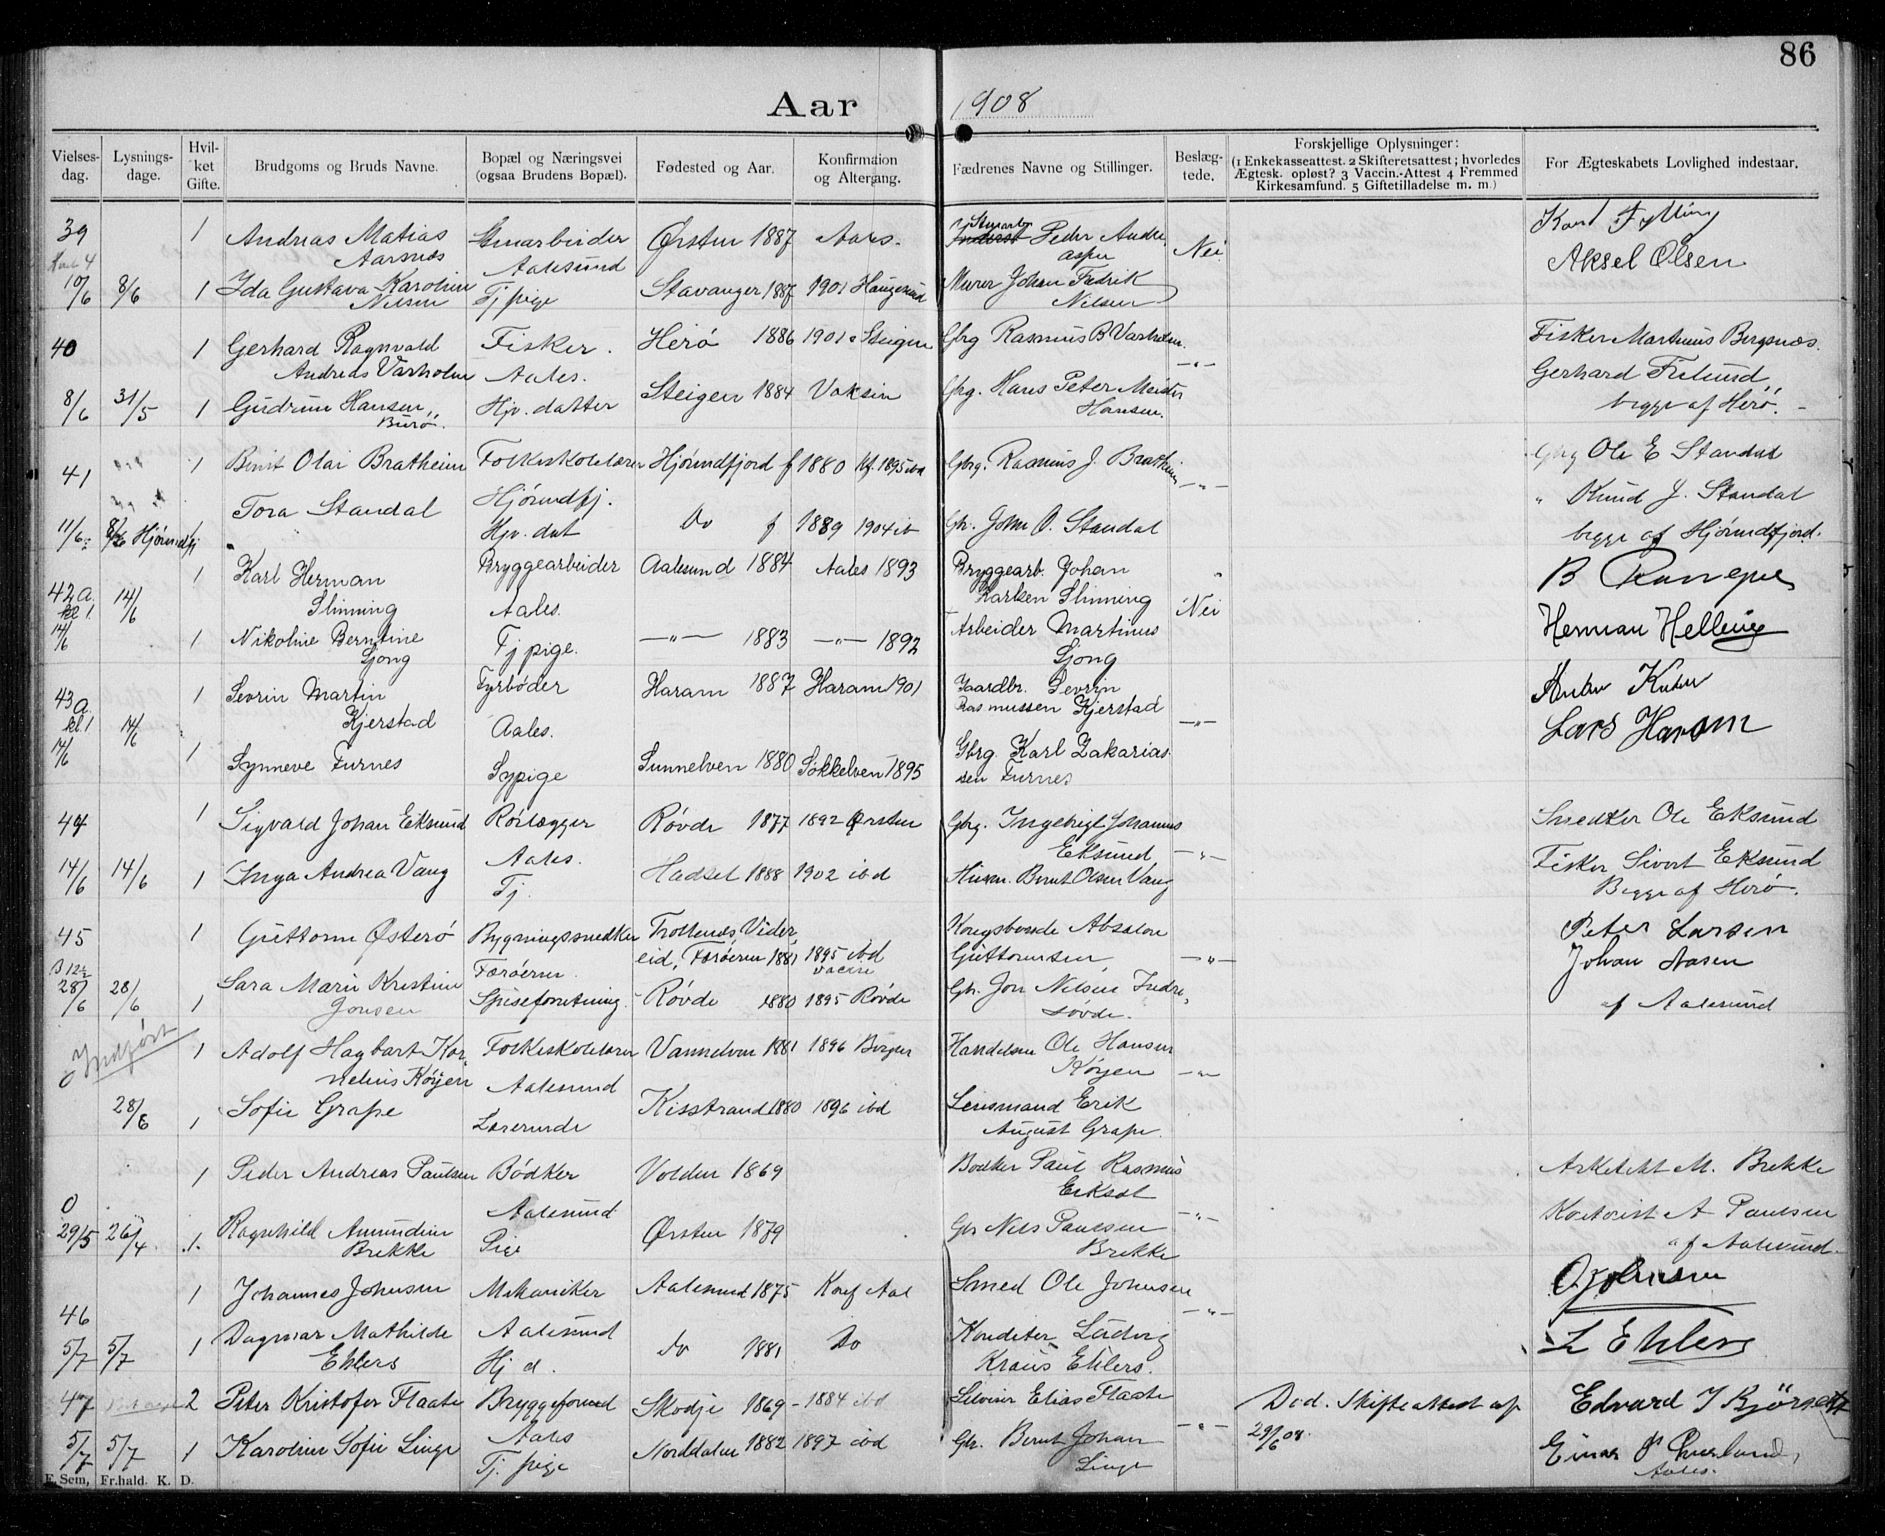 86
Aar 1908
Vielses-dag. Lysnings-dage. Hvil-ket Gifte. Brudgoms og Bruds Navne. Bopæl og Næringsvei (ogsaa Brudens Bopæl). Fødested og Aar. Konfirmation og Altergang. Fædrenes Navne og Stillinger. Beslæg-tede. Forskjellige Oplysninger: (1 Enkekasseattest. 2 Skifteretsattest; hvorledes Ægtesk. opløst? 3 Vaccin.-Attest 4 Fremmed Kirkesamfund. 5 Giftetilladelse m. m.) For Ægteskabets Lovlighed indestaar.
39 1 Andreas Matias Ørsten 1887 Aales. Peder Andre- Nei Karl Fylling
Aarsnæs Aalesund aspn Aksel Olsen
10/6 8/6 1 Ida Gustava Karoline Tj pige Stavanger 1887 1901 Haugesund Murer Johan Fredrik
Nilsen Nilsen
40 1 Gerhard Ragnvald Fisker. Herö 1886 1901 Steigen Gbrg Rasmus B Varholm. -"- Fisker Martinus Bergsnæs.
Andreas Varholm Aales. Gerhard Frilund,,
8/6 31/5 1 Gudrun Hansen,, Hjv. datter Steigen 1884 Vaksin Gbrg. Hans Peter begge af Herö.
Burö. Hansen.
41 1 Bernt Olai Bratheim Folkeskolelærer Hjørundfjord f 1880 kf. 1895 ibd Gbrg. Rasmus J. Bratheim -"- Gbrg Ole E Standal
Hjørundfj. " Knud J. Standal
11/6 8/6 Hjørundfj 1 Tora Standal Hjv. dat Do f 1889 1904 ib Gbr. John O. Standal begge af Hjørundfjord.
42 a. 1 Karl Herman Bryggearbeider Aalesund 1884 Aales 1893 Bryggearb. Johan
kl 1. 14/6 Slinning Aales. Karlsen Slinning Nei
14/6 1 Nikoline Berntine Tj pige. —"— 1883 —"— 1892 Arbeider Martinus Herman Hellevig
Sjong Sjong
43 a. 1 Sevrin Martin Fyrbøder Haram 1887 Haram 1901 Gaardbr. Sevrin
kl 1 14/6 Kjerstad Aales. Rasmussen Kjerstad -"- Lars Haram
14/6 1 Synneve Furnes Sypige Sunnelven 1880 Søkkelven 1895 Gbrg. Karl Zakarias-
sen Furnes
44 1 Sigvald Johan Eksund Rørlægger Røvde 1877 1892 Ørsten Gbrg. Ingebrigt Johannes Smedker Ole Eksund
Aales. Eksund -"- Fisker Sivert Eksund
14/6 14/6 1 Inga Andrea Vang Tj. Hadsel 1888 1902 ibd Husm. Bernt Olsen Vang Begge af Herö.
45 1 Guttorm Østerö Bygningssnedker Trollenæs Vider- Kongsbonde Absalon Peter Larsen
B 12½ Færöerne. eid, Færöerne 1881 1895 ibd vaccin Guttormsen -"- Johan Aasen
28/6 28/6 1 Sara Marie Kristine Spiseforretning. Røvde 1880 1895 Røvde Gbr. Jon Nilsen Indre- af Aalesund
Jonsen søvde.
Indført 1 Adolf Hagbart Kor- Folkeskolelærer Vannelven 1881 1896 Bergen Handelsm Ole Hansen
nelius Kørjen Aalesund Kørjen -"-
28/6 1 Sofie Grape Lærerinde Kisstrand 1880 1896 ibd Lensmand Erik
August Grape.
1 Peder Andreas Paulsen Bødker Volden 1869 Bødker Paul Rasmus Arkitekt M. Brekke
0 Aalesund Eiksæt -"- A Paulsen
29/5 26/4 1. Ragnhild Amundine Pige Ørsten 1879 Gbr Nils Paulsen af Aalesund.
Brekke Brekke
46 1 Johannes Johnsen Mekaniker Aalesund 1875 Konf Aal Smed Ole Johnsen -"- O Johnsen
Aalesund
5/7 5/7 1 Dagmar Mathilde Hj d. Do 1881 Do Konditor Ludvig L Ehlers
Ehlers Kraus Ehlers.
47 2 Peter Kristofer Flaate Bryggeformd Skodje 1869 - 1884 ibd Elias Flaate Död. Skifteattest af Edvard J Bjørseth
Aales -"- 29/6 08.
5/7 5/7 1 Karoline Sofie Linge Tj. pige Norddalen 1882 1897 ibd Gbr. Bernt Johan Einar
Linge Aales.
E. Sem, Fr.hald. K. D.